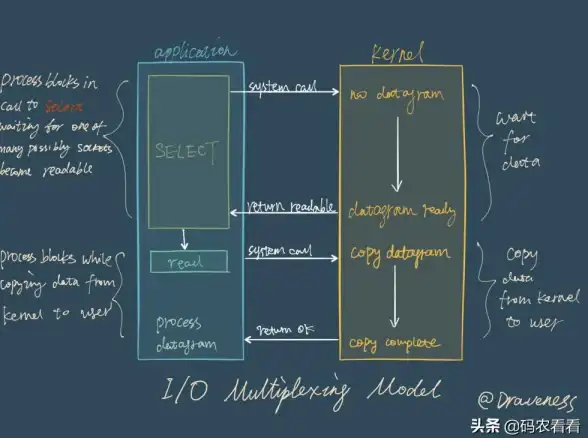 application
kernel
process blocks in
call to select
waiting for one of
many possibly sockets
become readable
SELECT
system call
no datagram
wait
for
data
return readable
datagram ready
process blocks while
copying data from
kernel to user
read
system call
copy datagram
copy
data
from kernel
to user
process
datagram
return OK
copy complete
I/O Multiplexing Model
@Draveness
头条 @码农看看